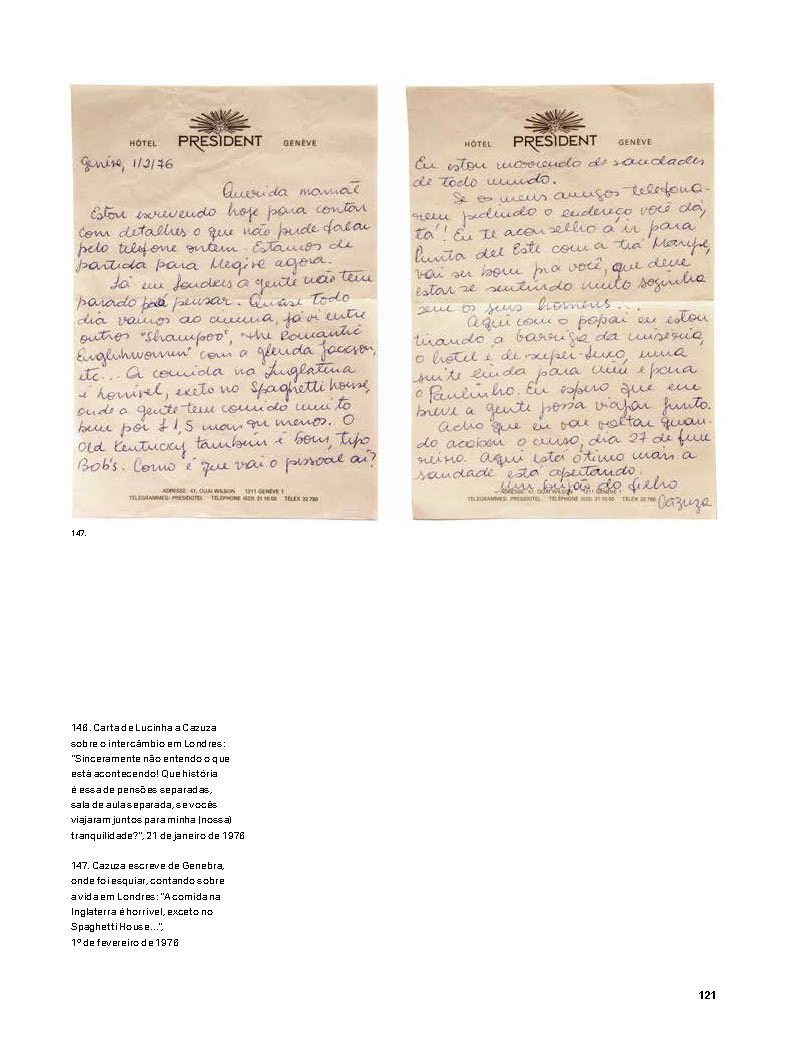 HÔTEL PRESIDENT GENÈVE
Genève, 1/2/76
Querida mamãe
Estou escrevendo hoje para contar
com detalhes o que não pude falar
pelo telefone ontem. Estamos de
partida para Megève agora.
Lá em Londres a gente não tem
parado pra pensar. Quase todo
dia vamos ao cinema, já vi entre
outros "Shampoo", "the Romantic
Englishwoman" com a Glenda Jackson,
etc... A comida na Inglaterra
é horrível, exeto no Spaghetti house,
onde a gente tem comido muito
bem por £ 1,5 mais ou menos. O
Old Kentucky também é bom, tipo
Bob's. Como é que vai o pessoal aí?
ADRESSE: 47, QUAI WILSON 1211 GENÈVE 1
TÉLÉGRAMMES: PRESIDOTEL TÉLÉPHONE (022) 31 10 00 TÉLEX 22 780
HÔTEL PRESIDENT GENÈVE
Eu estou morrendo de saudades
de todo mundo.
Se os meus amigos telefona-
rem pedindo o endereço você dá,
tá!! Eu te aconselho a ir para
Punta del Este com a tia
vai ser bom prá você, que deve
estar se sentindo muito sozinha
sem os seus homens...
Aqui com o papai eu estou
tirando a barriga da miséria,
o hotel é de super-luxo, uma
suíte linda para mim e para
o Paulinho. Eu espero que em
breve a gente possa viajar junto.
Acho que eu vou voltar quan-
do acabar o curso, dia 27 de feve
reiro. Aqui está ótimo mais a
saudade está apertando.
Um beijão do filho
Cazuza
ADRESSE: 47, QUAI WILSON 1211 GENÈVE 1
TÉLÉGRAMMES: PRESIDOTEL TÉLÉPHONE (022) 31 10 00 TÉLEX 22 780
147.
146. Carta de Lucinha a Cazuza
sobre o intercâmbio em Londres:
"Sinceramente não entendo o que
está acontecendo! Que história
é essa de pensões separadas,
sala de aula separada, se vocês
viajaram juntos para minha (nossa)
tranquilidade?", 21 de janeiro de 1976
147. Cazuza escreve de Genebra,
onde foi esquiar, contando sobre
a vida em Londres: "A comida na
Inglaterra é horrível, exceto no
Spaghetti House...",
1º de fevereiro de 1976
121